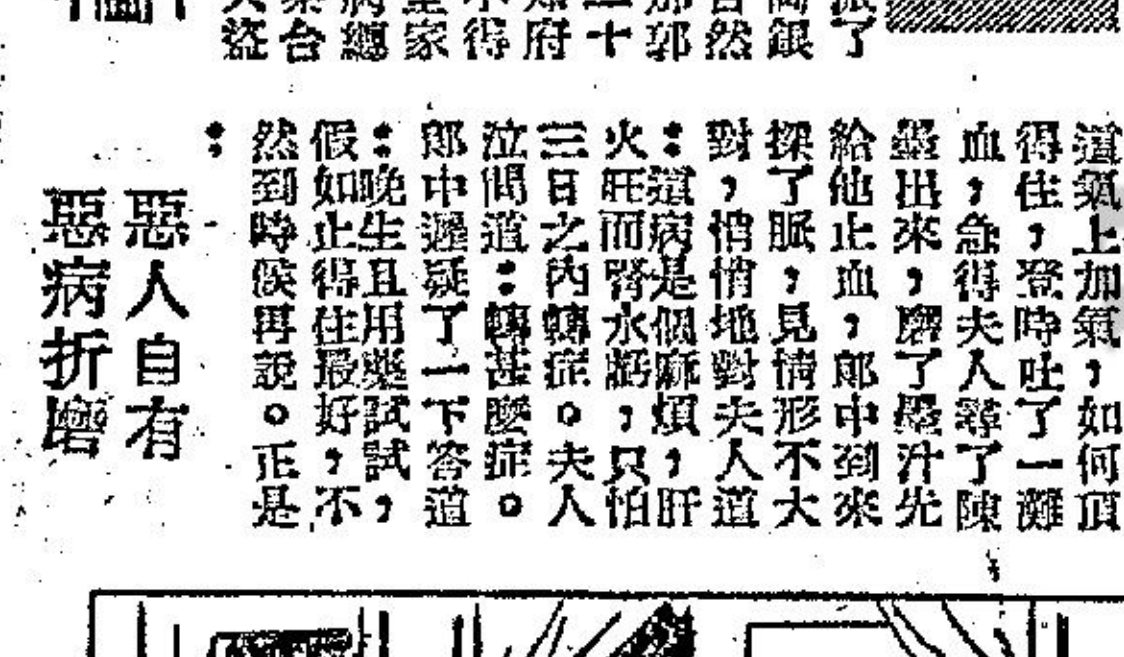 了
銀
然
郭
十
府
得
家
總
台
盜
這氣上加氣,如何頂
得住,登時吐了一灘
血,急得夫人尋了陳
墨出來,磨了墨汁先
給他止血,郎中到來
探了脈,見情形不大
對,悄悄地對夫人道
:這病是個麻煩,肝
火旺而腎水虧,只怕
三日之內轉症。夫人
泣問道:轉甚麼症。
郎中遲疑了一下答道
:晚生且用藥試試,
假如止得住最好,不
然到時候再說。正是
:
惡人自有
惡病折磨